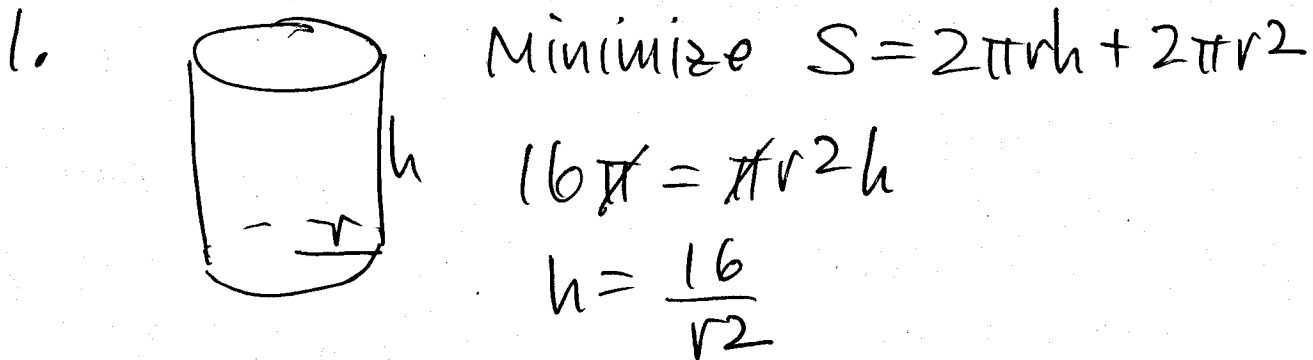 1. Minimize S = 2πrh + 2πr2
h 16π = πr2h
r
h = 16/r2